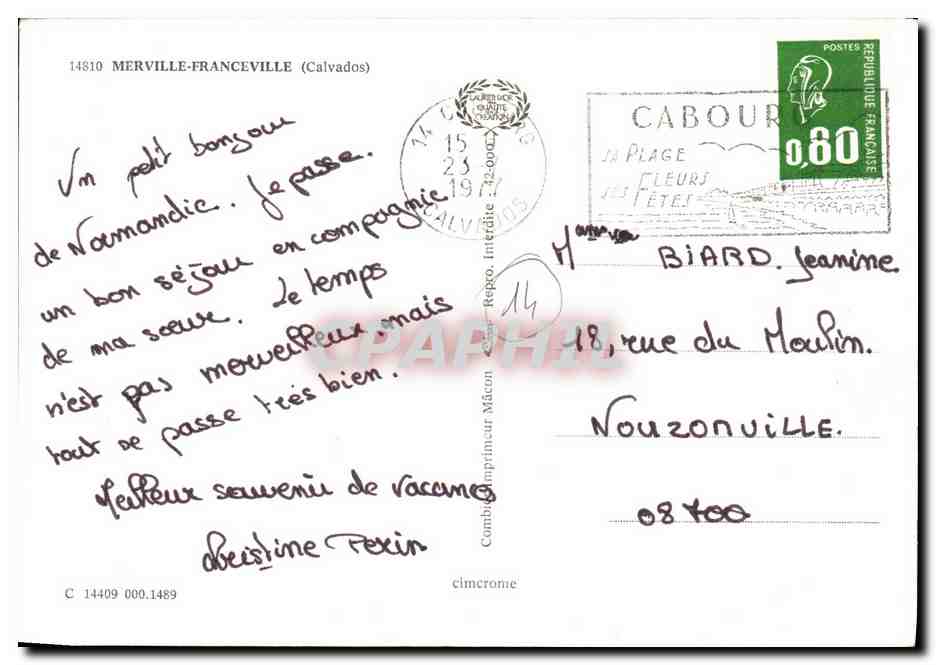 14810 MERVILLE-FRANCEVILLE (Calvados)
Un petit bonjour
de Normandie. Je passe
un bon séjour en compagnie
de ma sœur. Le temps
n'est pas merveilleux, mais
tout se passe très bien.
Meilleur souvenir de vacances
Christine Perin
C 14409 000.1489
LAURIER D'OR
DE
QUALITÉ
CRÉATION
Combier Imprimeur Mâcon Repro. Interdite 42.000
cimcrome
14
15
23
1977
CALVADOS
CABOURG
SA PLAGE
SES FLEURS
SES FÊTES
POSTES
REPUBLIQUE FRANÇAISE
0,80
BIARD. Jeanine
18, rue du Moulin.
NOUZONVILLE.
08700
14
CPAPHIL